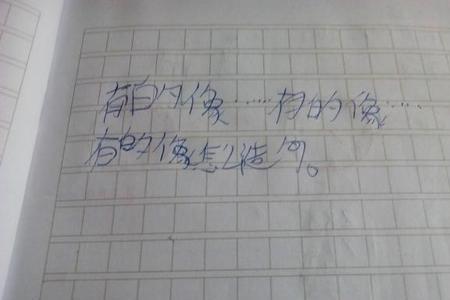 有的像……有的像…
有的像怎么造句。